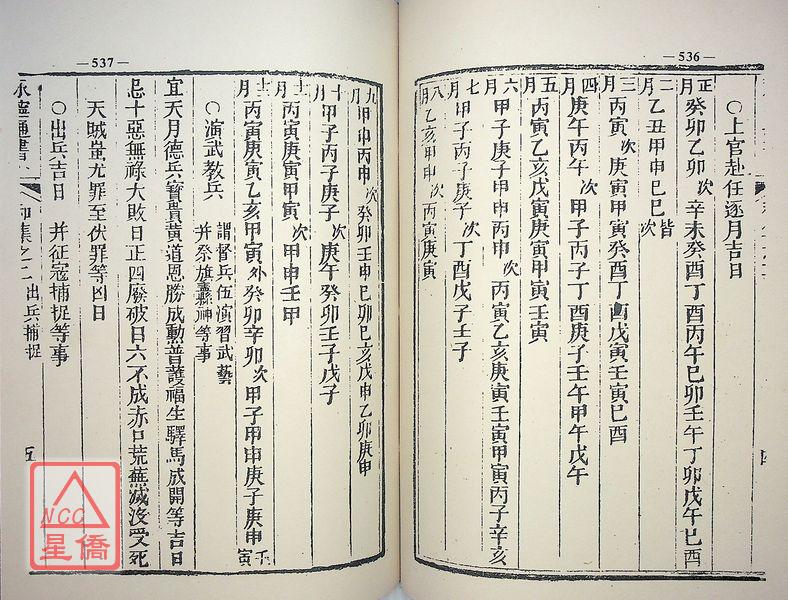 —536—
○上官赴任逐月吉日
正月癸卯乙卯次辛未癸酉丁酉丙午己卯壬午丁卯戊午己酉
二月乙丑甲申己巳皆次
三月丙寅次庚寅甲寅癸酉丁酉戊寅壬寅己酉
四月庚午丙午次甲子丙子丁酉庚子壬午甲午戊午
五月丙寅乙亥戊寅庚寅甲寅壬寅
六月甲子庚子甲申丙申次丙寅乙亥庚寅壬寅甲寅丙子辛亥
七月甲子丙子庚子次丁酉戊子壬子
八月乙亥甲申次丙寅庚寅
—537—
九月甲申丙申次癸卯壬申己卯己亥戊申乙卯庚申
十月甲子丙子庚子次庚午癸卯壬子戊子
十一月丙寅庚寅甲寅次甲申壬申
十二月丙寅庚寅乙亥甲寅外癸卯辛卯次甲子甲申庚子庚申壬寅
○演武教兵 謂督兵伍演習武藝并祭旗纛神等事
宜天月德兵寶貴黃道恩勝成勳普護福生驛馬成開等吉日
忌十惡無祿大敗日正四廢破日六不成赤口荒蕪滅沒受死
天賊蚩尤罪至伏罪等凶日
○出兵吉日 并征寇捕捉等事
永寧通書 利集之二 出兵捕捉 五
NCC
星僑